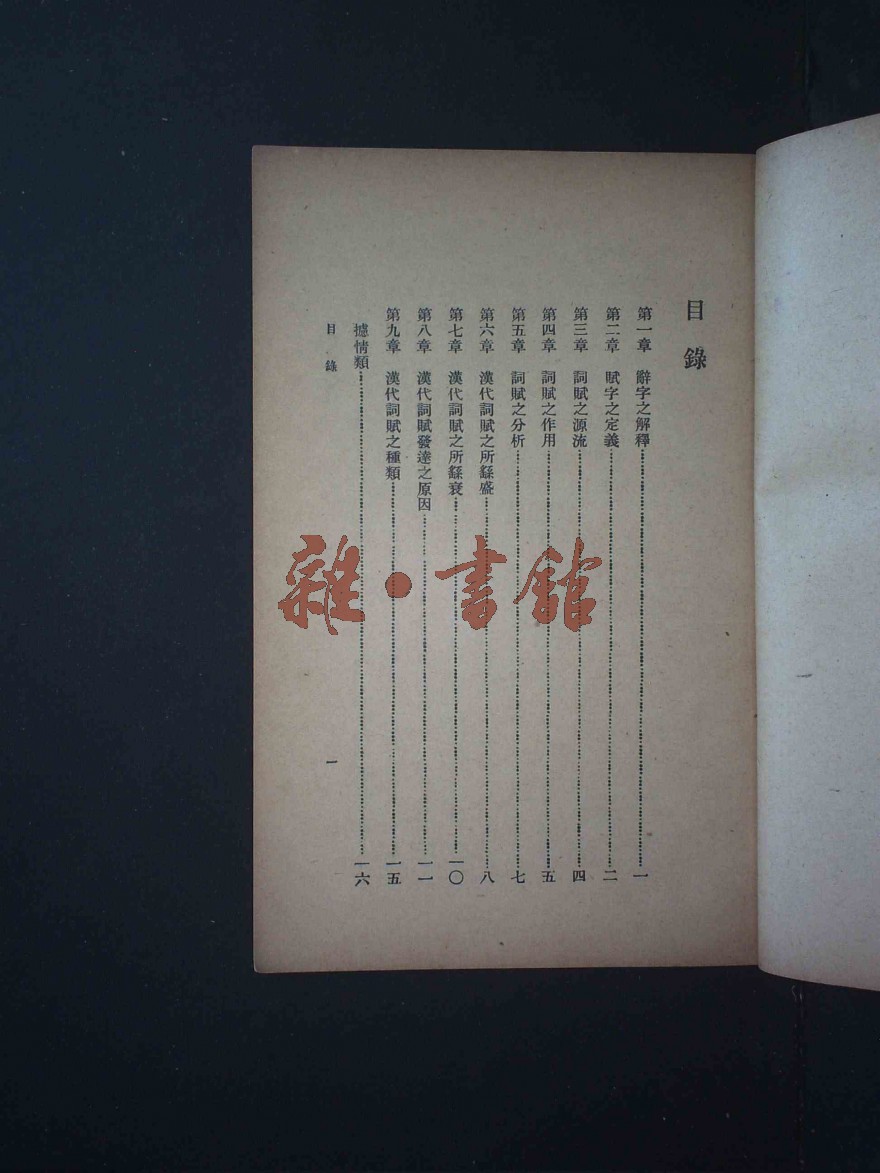 目錄
第一章　辭字之解釋……一
第二章　賦字之定義……二
第三章　詞賦之源流……四
第四章　詞賦之作用……五
第五章　詞賦之分析……七
第六章　漢代詞賦之所繇盛……八
第七章　漢代詞賦之所繇衰……一〇
第八章　漢代詞賦發達之原因……一一
第九章　漢代詞賦之種類……一五
攄情類……一六
目錄
一
雜·書館